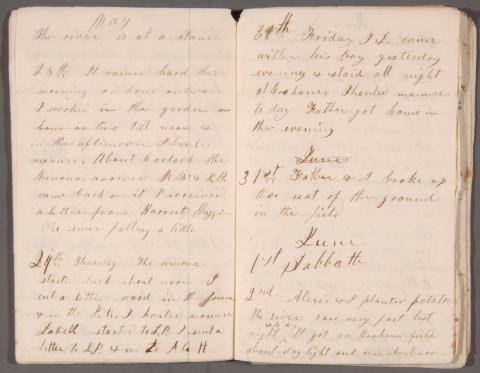 May
The river is at a stand
28th It rained hard this
morning an hour or two
I work in the garden an
hour or two till noon &
in the afternoon I hauled
manure. About 6 oclock the
Winona arrived
came back on it I received
a letter from Harriet
The river falling a little
29th Thursday The winona
started back about noon I
cut a little wood in the
& in the P.M. I hauled manure
started to S.P. I sent a
letter to S.P. & one to A G H
30th Friday J.L. came
with his boy yesterday
evening & staid all night
at Grahams I hauled manure
to day Father got home in
the evening
June
31st Father & I broke up
the rest of the ground
in the field
June
1st Sabbath
2nd Alexis & I planted potatoes
the river rose very fast last
night. It got on Grahams field
about day light and ours about noon